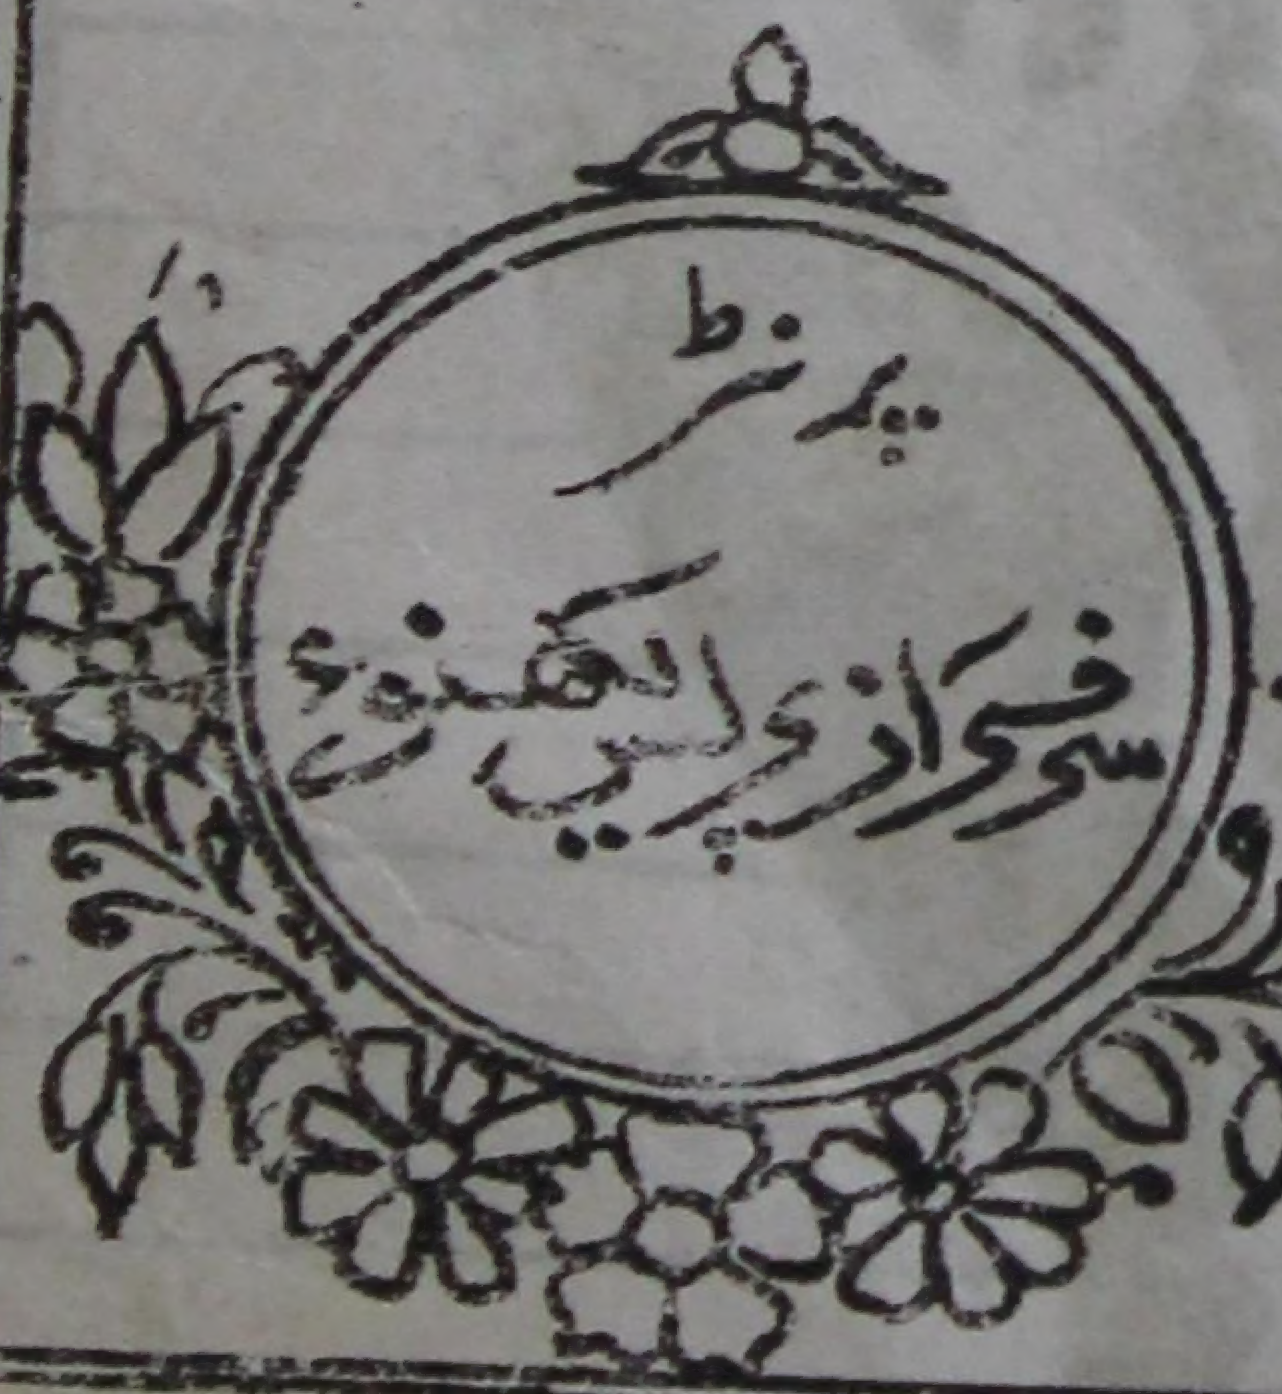 پرنٹر
سرفراز پریس لکھنؤ